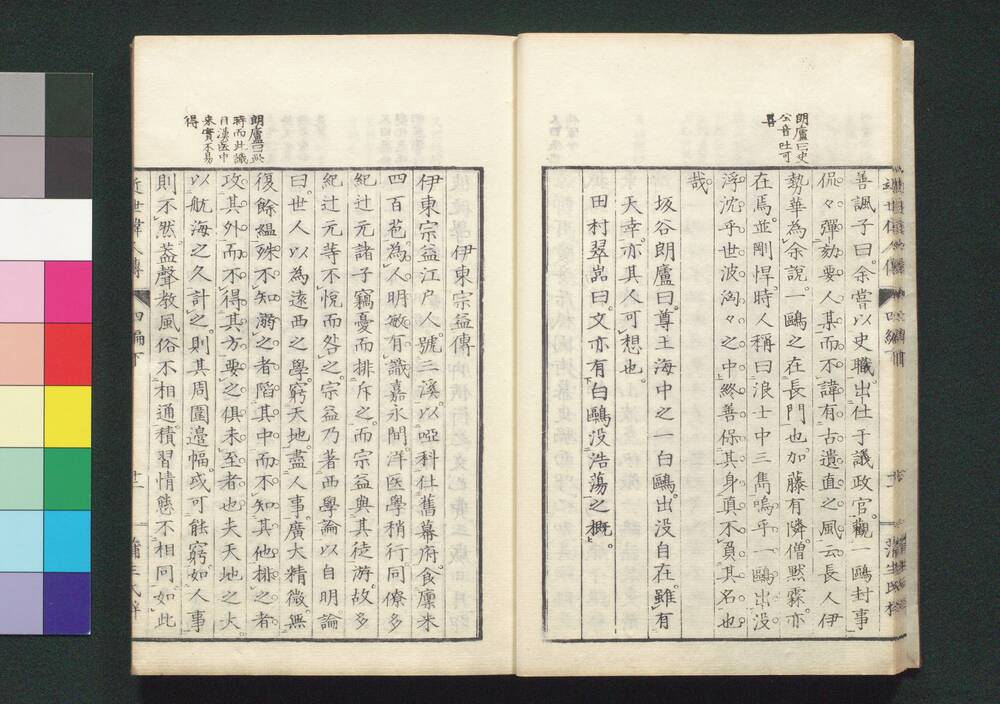 朗廬曰史
公音吐可
善諷子曰。余嘗以史職。出仕于議政官。觀一鷗封事
侃々彈劾要人某而不諱。有古遺直之風云。長人伊
勢華為余說。一鷗之在長門也。加藤有隣僧黙霖。亦
在焉。並剛悍。時人稱曰浪士中三雋。嗚乎一鷗出没
浮沈乎世波洶々之中。終善保其身。真不負其名也
哉。
坂谷朗廬曰。尊王海中之一白鷗。出没自在。雖有
天幸。亦其人可想也。
田村翠嵒曰。文亦有白鷗没浩蕩之概。
伊東宗益傳
朗廬曰此
時而此識
漢医中
来實不易
得
伊東宗益江戸人。號三溪。以啞科仕舊幕府。食廩米
四百苞。為人明敏有識。嘉永間。洋医學稍行。同僚多
紀辻元諸子竊憂而排斥之。而宗益與其徒游。故多
紀辻元等不悅而咎之。宗益乃著西學論以自明。論
曰。世人以為遠西之學。窮天地。盡人事。廣大精微。無
復餘縕。殊不知溺之者陷其中而不知其他。排之者
攻其外而不得其方。要之俱未至者也。夫天地之大。
以航海之久計之。則其周圍邊幅。或可能窮。如人事
則不然。蓋聲教風俗不相通。積習情態不相同。如此
近世偉人傳
四編下
蒲生氏梓